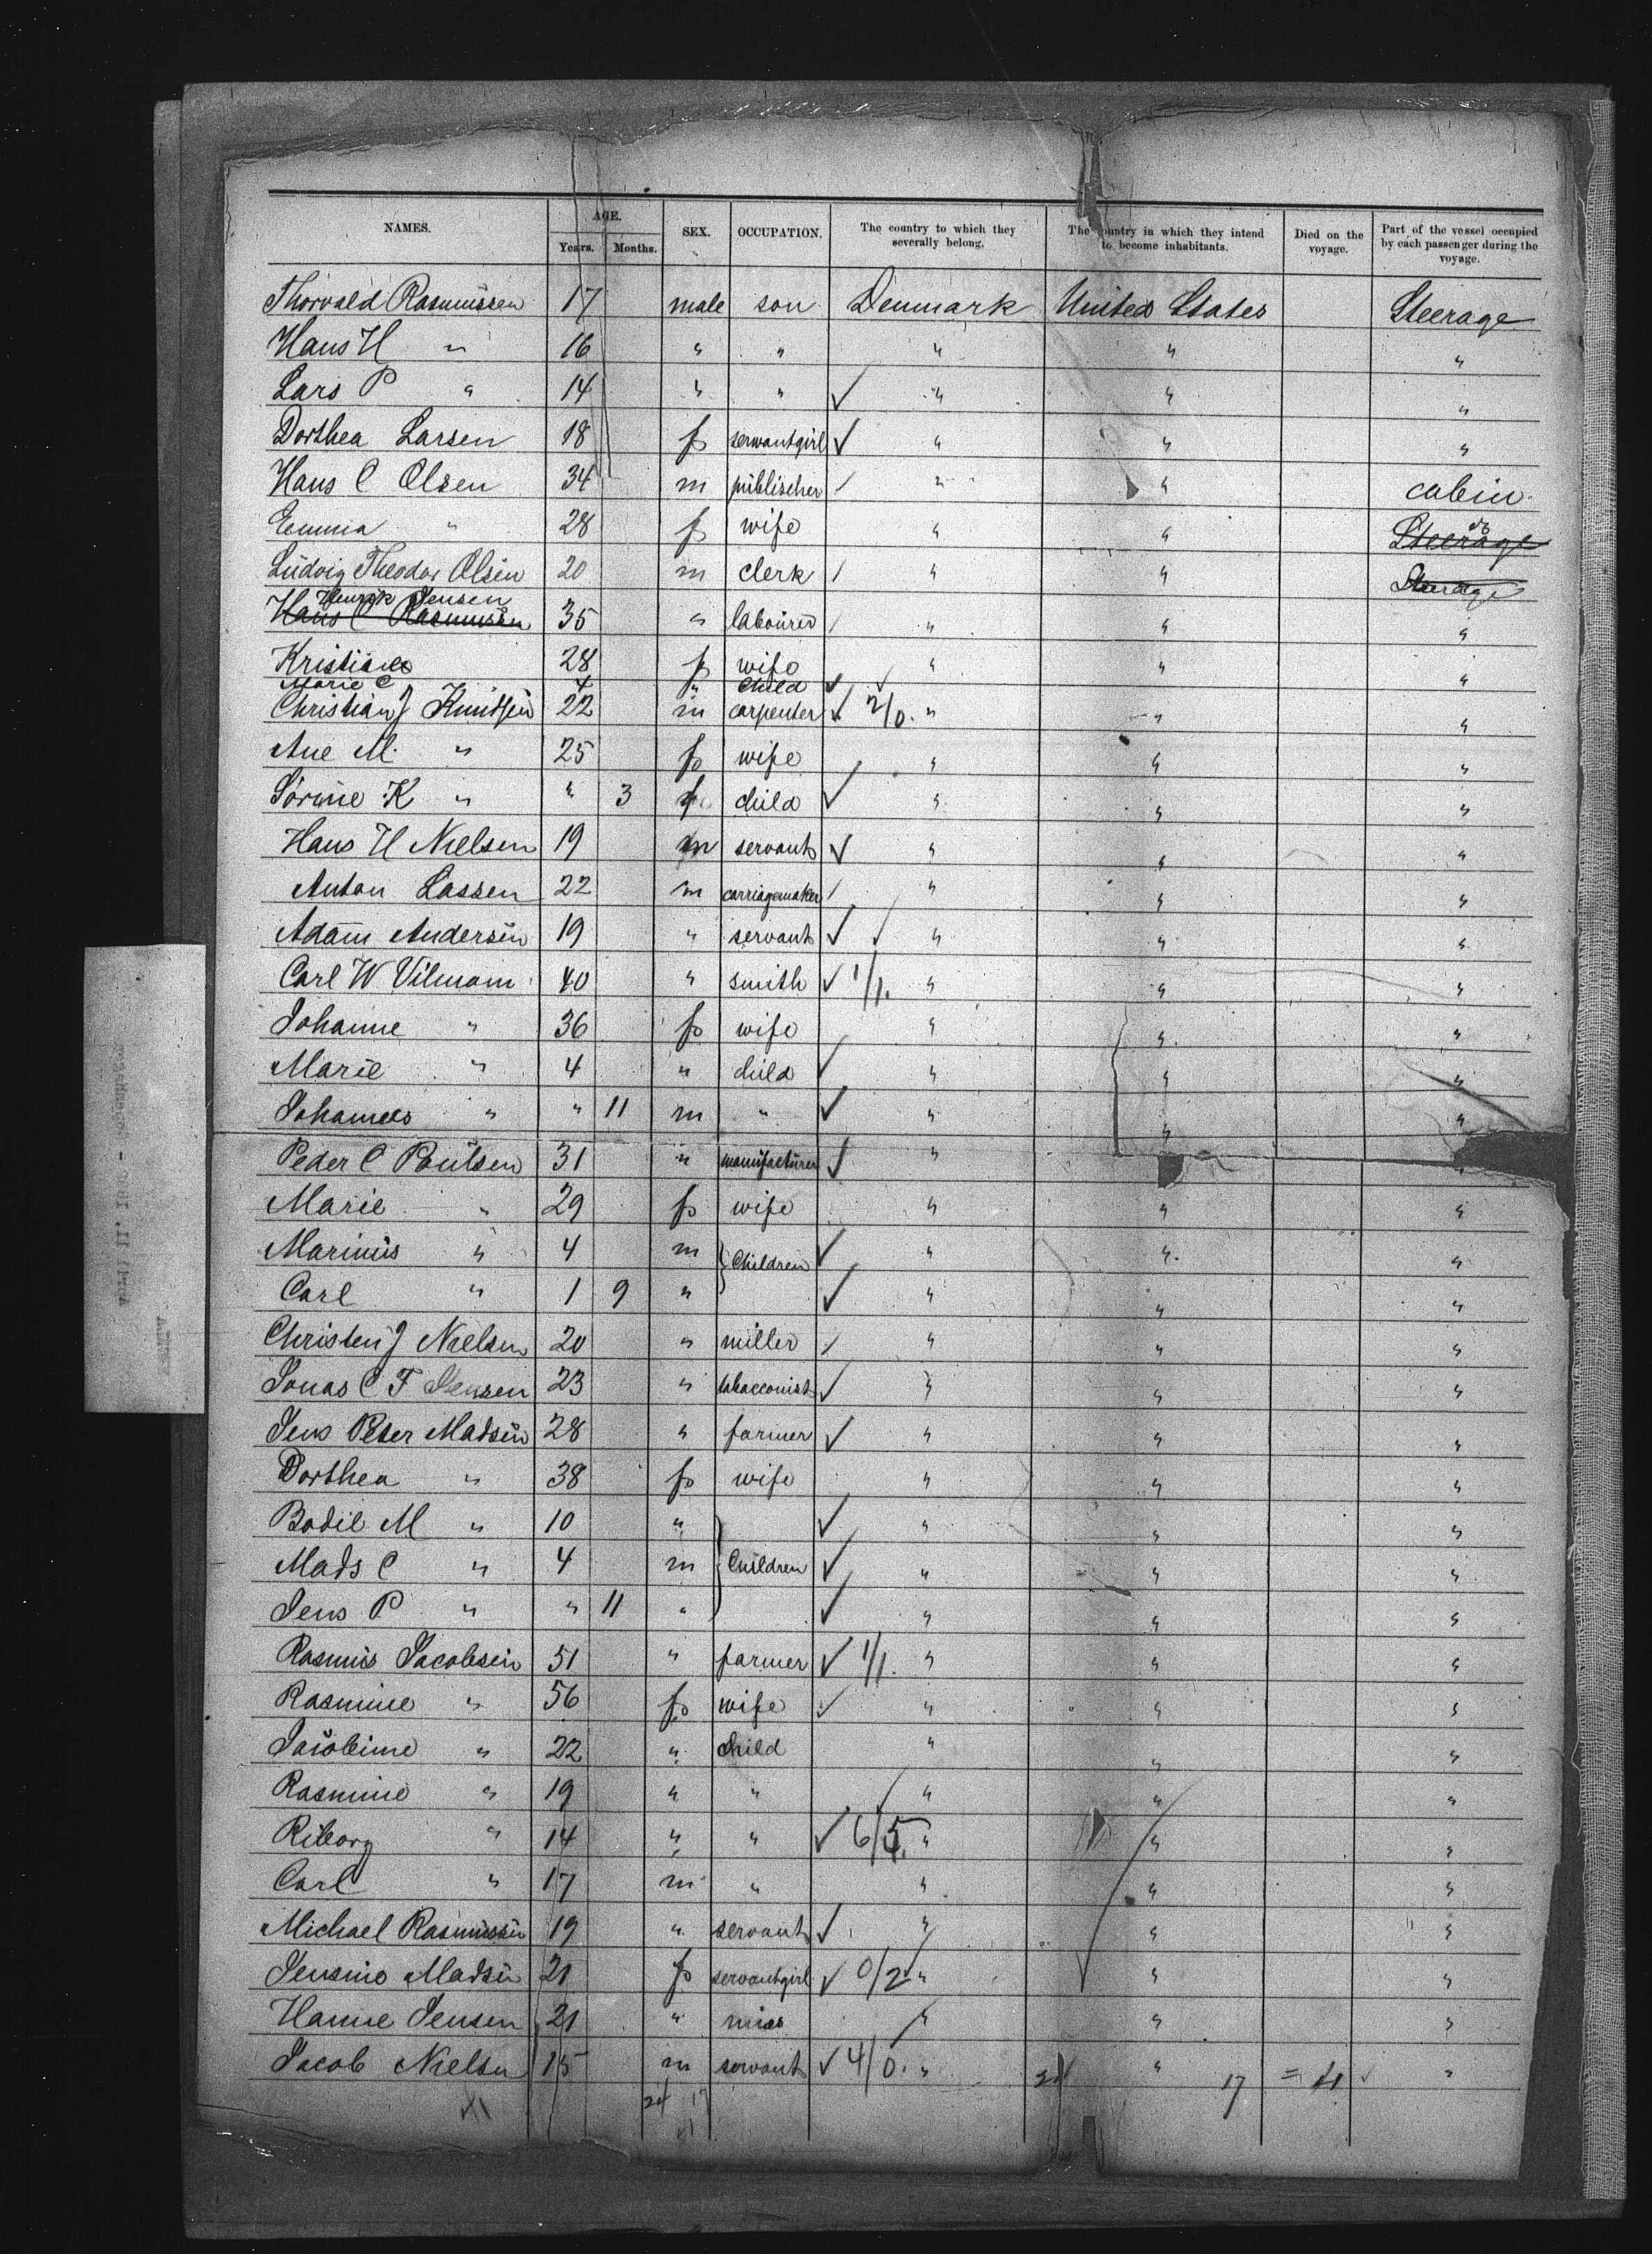 NAMES. AGE. SEX. OCCUPATION. The country to which they severally belong. The country in which they intend to become inhabitants. Died on the voyage. Part of the vessel occupied by each passenger during the voyage.
Years. Months.
Thorvald Rasmussen 17 male son Denmark United States Steerage
Hans H " 16 " " " " "
Lars P " 14 " " ✓ " " "
Dorthea Larsen 18 f servantgirl ✓ " " "
Hans C Olsen 34 m publischer / " " cabin
Emma " 28 f wife " " do Steerage
Ludvig Theodor Olsen 20 m clerk / " " Steerage
Henrik Jensen
Hans C Rasmussen 35 " labourer / " " "
Kristine 28 f wife " " "
Marie C 4 " child ✓
Christian J Knudsen 22 m carpenter ✓ 2/0. " " "
Ane M. " 25 f wife " " "
Sorine K " " 3 f child ✓ " " "
Hans H Nielsen 19 m servant ✓ " " "
Anton Lassen 22 m carriagemaker / " " "
Adam Andersen 19 " servant ✓ " " "
Carl W Vilmann 40 " smith ✓ 1/1. " " "
Johanne " 36 f wife " " "
Marie " 4 " child ✓ " " "
Johannes " " 11 m " ✓ " " "
Peder C Poulsen 31 " manufacturer ✓ " " "
Marie " 29 f wife " " "
Marinus " 4 m Children ✓ " " "
Carl " 1 9 " ✓ " " "
Christen J Nielsen 20 " miller / " " "
Jonas C F Jensen 23 " tabacconist ✓ " " "
Jens Peter Madsen 28 " farmer ✓ " " "
Dorthea " 38 f wife " " "
Bodil M " 10 " ✓ " " "
Mads C " 4 m Children ✓ " " "
Jens P " " 11 " ✓ " " "
Rasmus Jacobsen 51 " farmer ✓ 1/1. " " "
Rasmine " 56 f wife ✓ " " "
Jacobine " 22 " child " " "
Rasmine " 19 " " " " "
Riborg " 14 " " ✓ 6/5. " " "
Carl " 17 m " " " "
Michael Rasmussen 19 " servant ✓ " " "
Jensine Madsen 21 f servantgirl ✓ 0/2 " " "
Hanne Jensen 21 " miss " " "
Jacob Nielsen 15 m servant ✓ 4/0. " " "
24 17 = 41
24 17